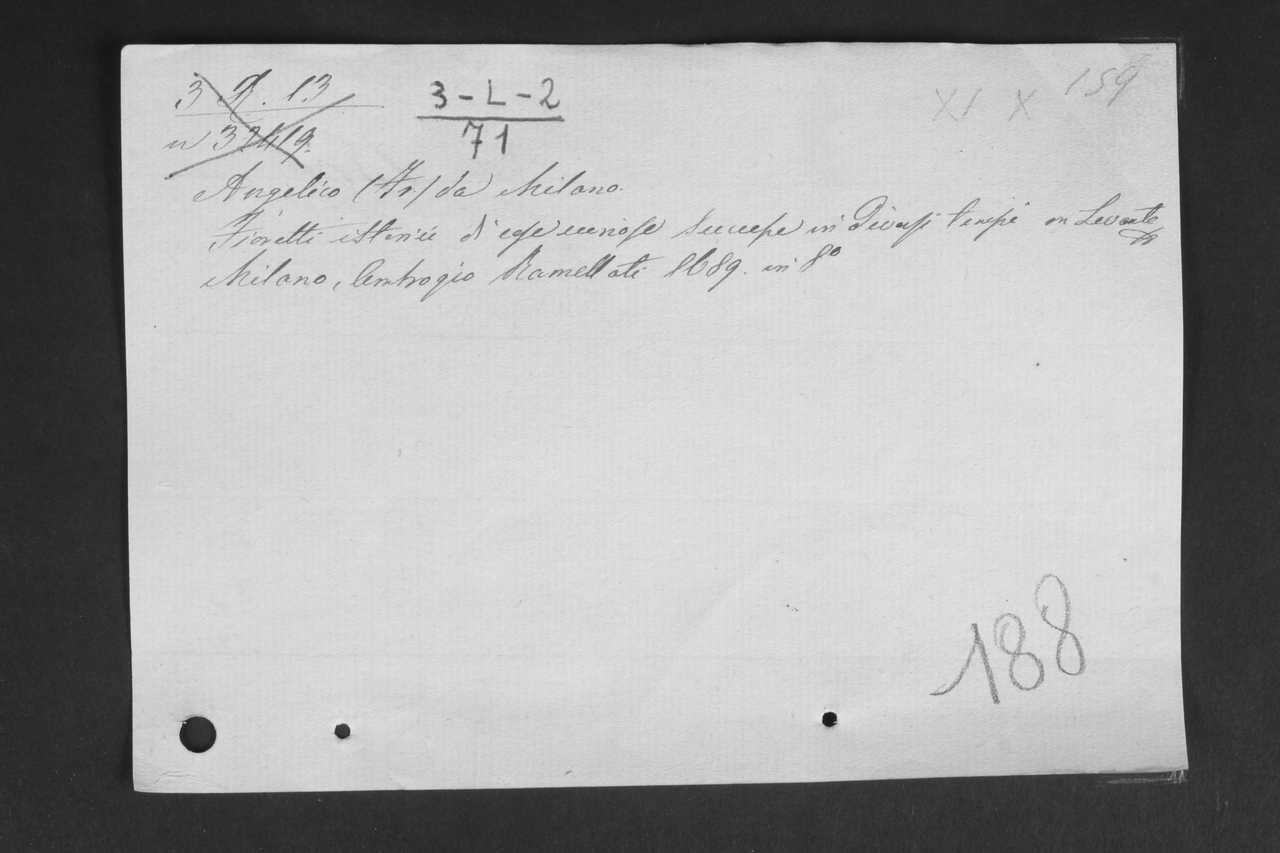 3 R. 13
n 32419.
3-L-2
71
XI X 159
Angelico (Fr) da Milano.
Fioretti istorici di cose curiose successe in diversi tempi in Levante
Milano, Ambrogio Ramellati 1689. in 8º
188